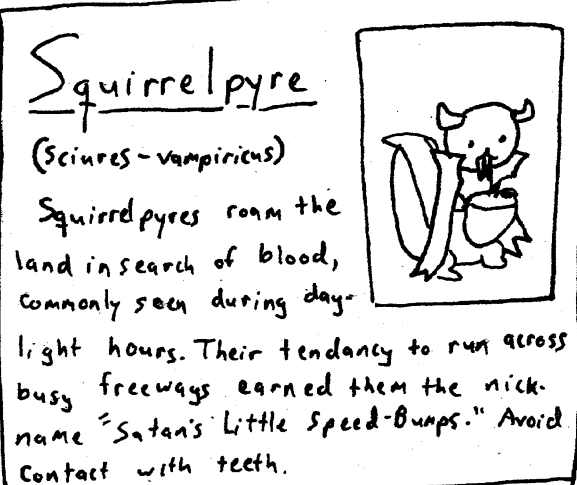 Squirrelpyre
(Sciures-vampiricus)
Squirrelpyres roam the
land in search of blood,
commonly seen during day-
light hours. Their tendancy to run across
busy freeways earned them the nick-
name "Satan's Little Speed-Bumps." Avoid
contact with teeth.